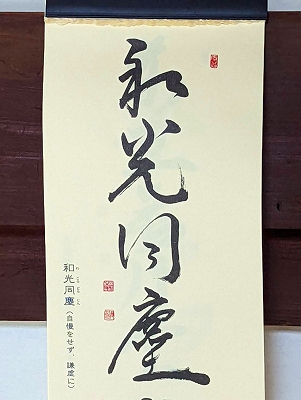 和光同塵
和光同塵(自慢をせず、謙虚に)
わこうどうじん